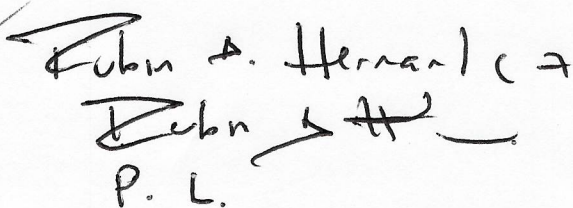 Rubin A. Hernandez
Rubin A H
P. L.